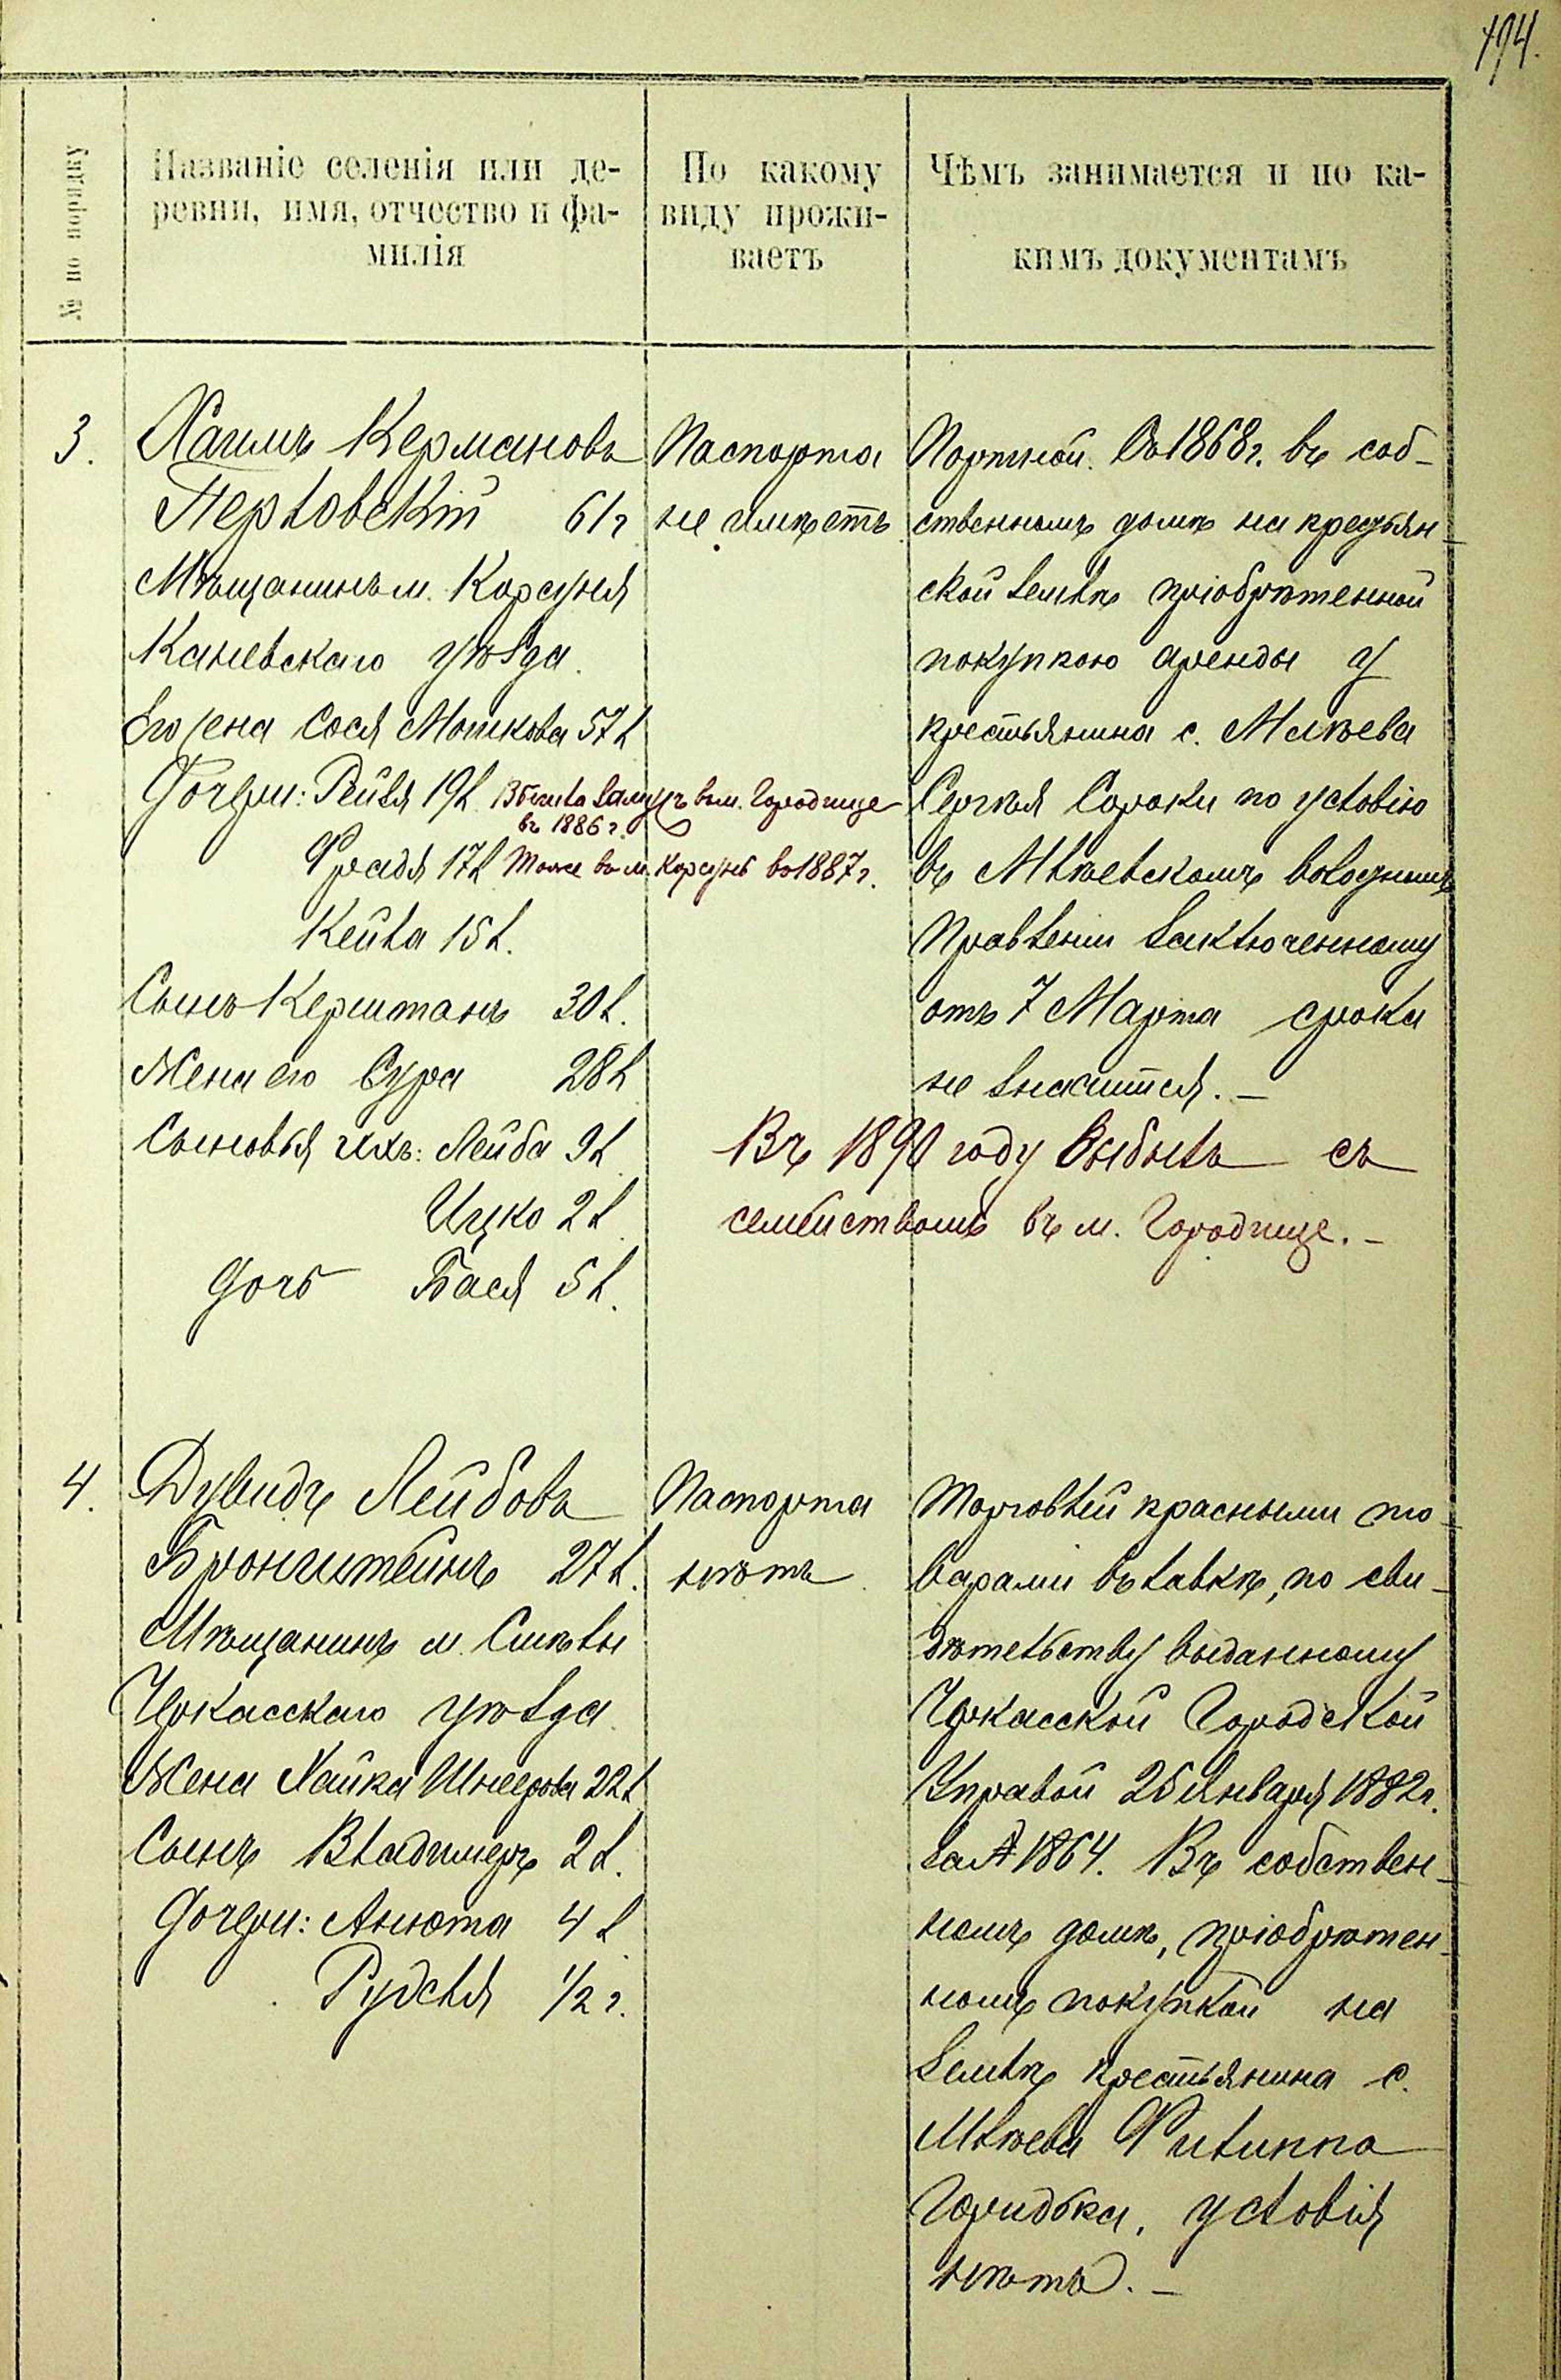 194.
№ по порядку
Названіе селенія или де-
ревни, имя, отчество и фа-
милія
По какому
виду прожи-
ваетъ
Чѣмъ занимается и по ка-
кимъ документамъ
3.
Хаимъ Кермановъ
Перловскій 61 г
Мѣщанинъ м. Корсуня
Каневскаго уѣзда.
Его жена Сося Мошкова 57 л
Дочери: Рейзя 19 л. Вышла замужъ въ м. Городище
въ 1886 г.
Фрадя 17 л тоже въ м. Корсунь въ 1887 г.
Кейла 15 л.
Сынъ Керштанъ 30 л.
Жена его Сура 28 л
Сыновья ихъ: Лейба 9 л
Ицко 2 л.
Дочь Бася 5 л.
Паспорта
не имѣетъ.
Портной. Съ 1868 г. въ соб-
ственномъ домѣ на крестьян-
ской землѣ пріобрѣтенной
покупкою аренды у
крестьянина с. Млѣева
Сергѣя Сороки по условію
въ Млѣевскомъ волосномъ
Правленіи заключенному
отъ 7 Марта срока
не значится. –
Въ 1890 году выбылъ съ
семействомъ въ м. Городище. –
4.
Дувидъ Лейбовъ
Бронштейнъ 27 л.
Мѣщанинъ м. Смѣлы
Черкасскаго уѣзда.
Жена Хайка Шнеерова 22 л
Сынъ Владимеръ 2 л.
Дочери: Анюта 4 л.
Рудсля 1/2 г.
Паспорта
нѣтъ.
Торговлей красными то-
варами въ лавкѣ, по сви-
дѣтельству выданному
Черкасской Городской
Управой 25 Января 1882 г.
за № 1864. Въ собствен-
номъ домѣ, пріобрѣтен-
номъ покупкой на
землѣ крестьянина с.
Млѣева Филиппа
Горидька, условія
нѣтъ. –